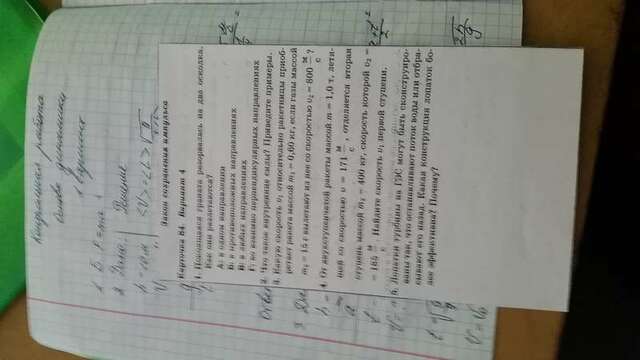 Контрольная работа
Основы динамики
1 вариант
1. Б. F = ma
2. Дано:
Решение
h = 10 м
Закон сохранения импульса
Карточка 84. Вариант 4
1. Покоящаяся граната разорвалась на два осколка.
Как они разлетаются?
А: в одном направлении
Б: в противоположных направлениях
В: в любых направлениях
Г: во взаимно перпендикулярных направлениях
2. Что такое внутренние силы? Приведите примеры.
3. Какую скорость υ₁ относительно ракетницы приоб-
ретает ракета массой m₁ = 0,60 кг, если газы массой
m₂ = 15 г вылетают из нее со скоростью υ₂ = 800 м/с ?
4. От двухступенчатой ракеты массой m = 1,0 т, летя-
щей со скоростью υ = 171 м/с , отделяется вторая
ступень массой m₂ = 400 кг, скорость которой υ₂ =
= 185 м/с . Найдите скорость υ₁ первой ступени.
5. Лопатки турбины на ГЭС могут быть сконструиро-
ваны так, что останавливают поток воды или отбра-
сывают его назад. Какая конструкция лопаток бо-
лее эффективна? Почему?